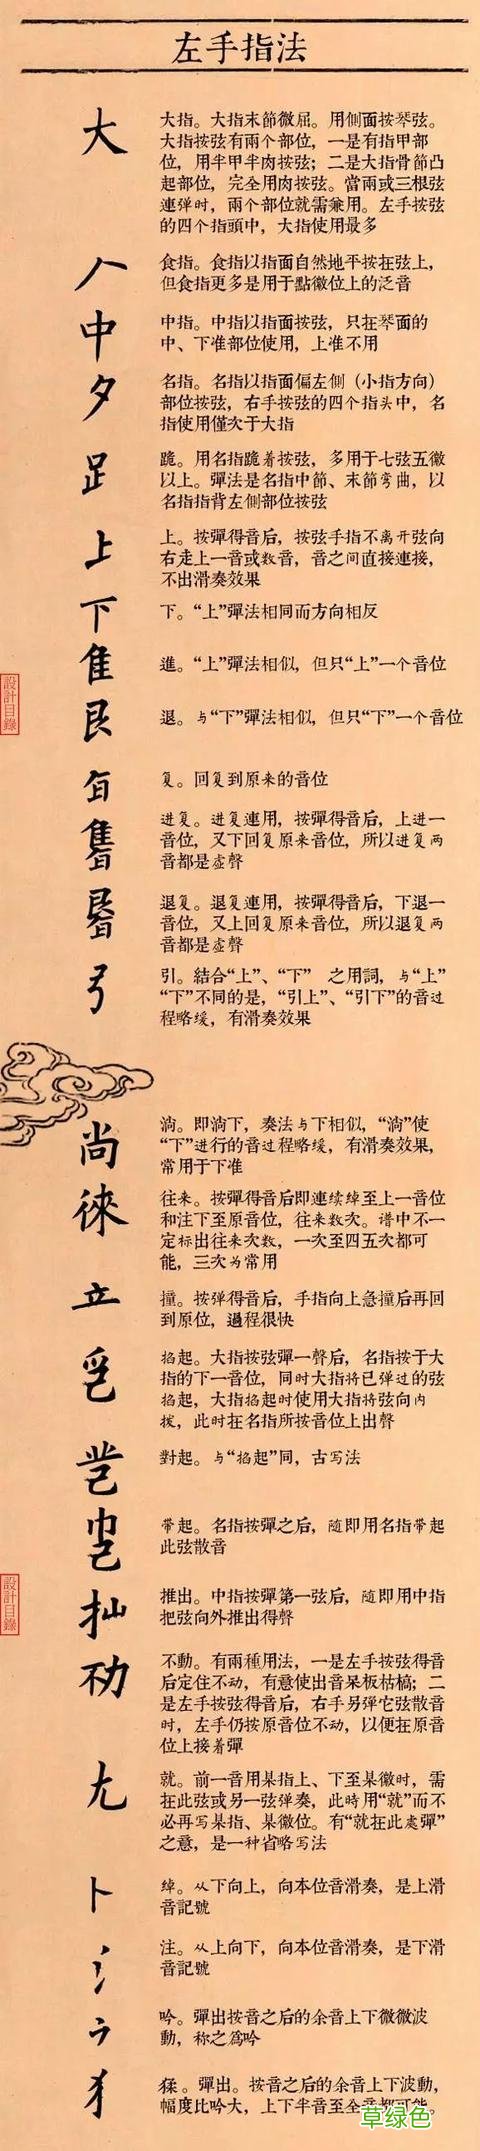 左手指法
大
大指。大指末節微屈。用側面按琴弦。
大指按弦有兩个部位，一是有指甲部
位，用半甲半肉按弦；二是大指骨節凸
起部位，完全用肉按弦。當兩或三根弦
連弹时，兩个部位就需兼用。左手按弦
的四个指頭中，大指使用最多
𠂉
食指。食指以指面自然地平按在弦上，
但食指更多是用于點徽位上的泛音
中
中指。中指以指面按弦，只在琴面的
中、下准部位使用，上准不用
夕
名指。名指以指面偏左側（小指方向）
部位按弦，右手按弦的四个指头中，名
指使用僅次于大指
𧾷
跪。用名指跪着按弦，多用于七弦五徽
以上。彈法是名指中節、末節弯曲，以
名指指背左側部位按弦
上
上。按彈得音后，按弦手指不离开弦向
右走上一音或数音，音之间直接連接，
不出滑奏效果
下
下。“上”彈法相同而方向相反
隹
進。“上”彈法相似，但只“上”一个音位
艮
退。与“下”彈法相似，但只“下”一个音位
复。回复到原来的音位
进复。进复連用，按彈得音后，上进一
音位，又下回复原来音位，所以进复两
音都是虛聲
退复。退复連用，按彈得音后，下退一
音位，又上回复原来音位，所以退复两
音都是虛聲
弓
引。結合“上”、“下” 之用詞，与“上”
“下”不同的是，“引上”、“引下”的音过
程略缓，有滑奏效果
尚
淌。即淌下，奏法与下相似，“淌”使
“下”进行的音过程略缓，有滑奏效果，
常用于下准
徠
往来。按彈得音后即連续绰至上一音位
和注下至原音位，往来数次。谱中不一
定标出往来次数，一次至四五次都可
能，三次为常用
立
撞。按弹得音后，手指向上急撞后再回
到原位，過程很快
掐起。大指按弦彈一聲后，名指按于大
指的下一音位，同时大指将已弹过的弦
掐起，大指掐起时使用大指将弦向内
拨，此时在名指所按音位上出聲
對起。与“掐起”同，古写法
帶起。名指按彈之后，随即用名指带起
此弦散音
拙
推出。中指按彈第一弦后，随即用中指
把弦向外推出得聲
不動。有兩種用法，一是左手按弦得音
后定住不动，有意使出音呆板枯槁；二
是左手按弦得音后，右手另弹它弦散音
时，左手仍按原音位不动，以便在原音
位上接着彈
尢
就。前一音用某指上、下至某徽时，需
在此弦或另一弦弹奏，此時用“就”而不
必再写某指、某徽位。有“就在此處彈”
之意，是一种省略写法
卜
绰。从下向上，向本位音滑奏，是上滑
音記號
氵
注。从上向下，向本位音滑奏，是下滑
音記號
吟。彈出按音之后的余音上下微微波
動，称之爲吟
犭
猱。彈出。按音之后的余音上下波動，
幅度比吟大，上下半音至全音都可能。
設計目錄
設計目錄
草绿色